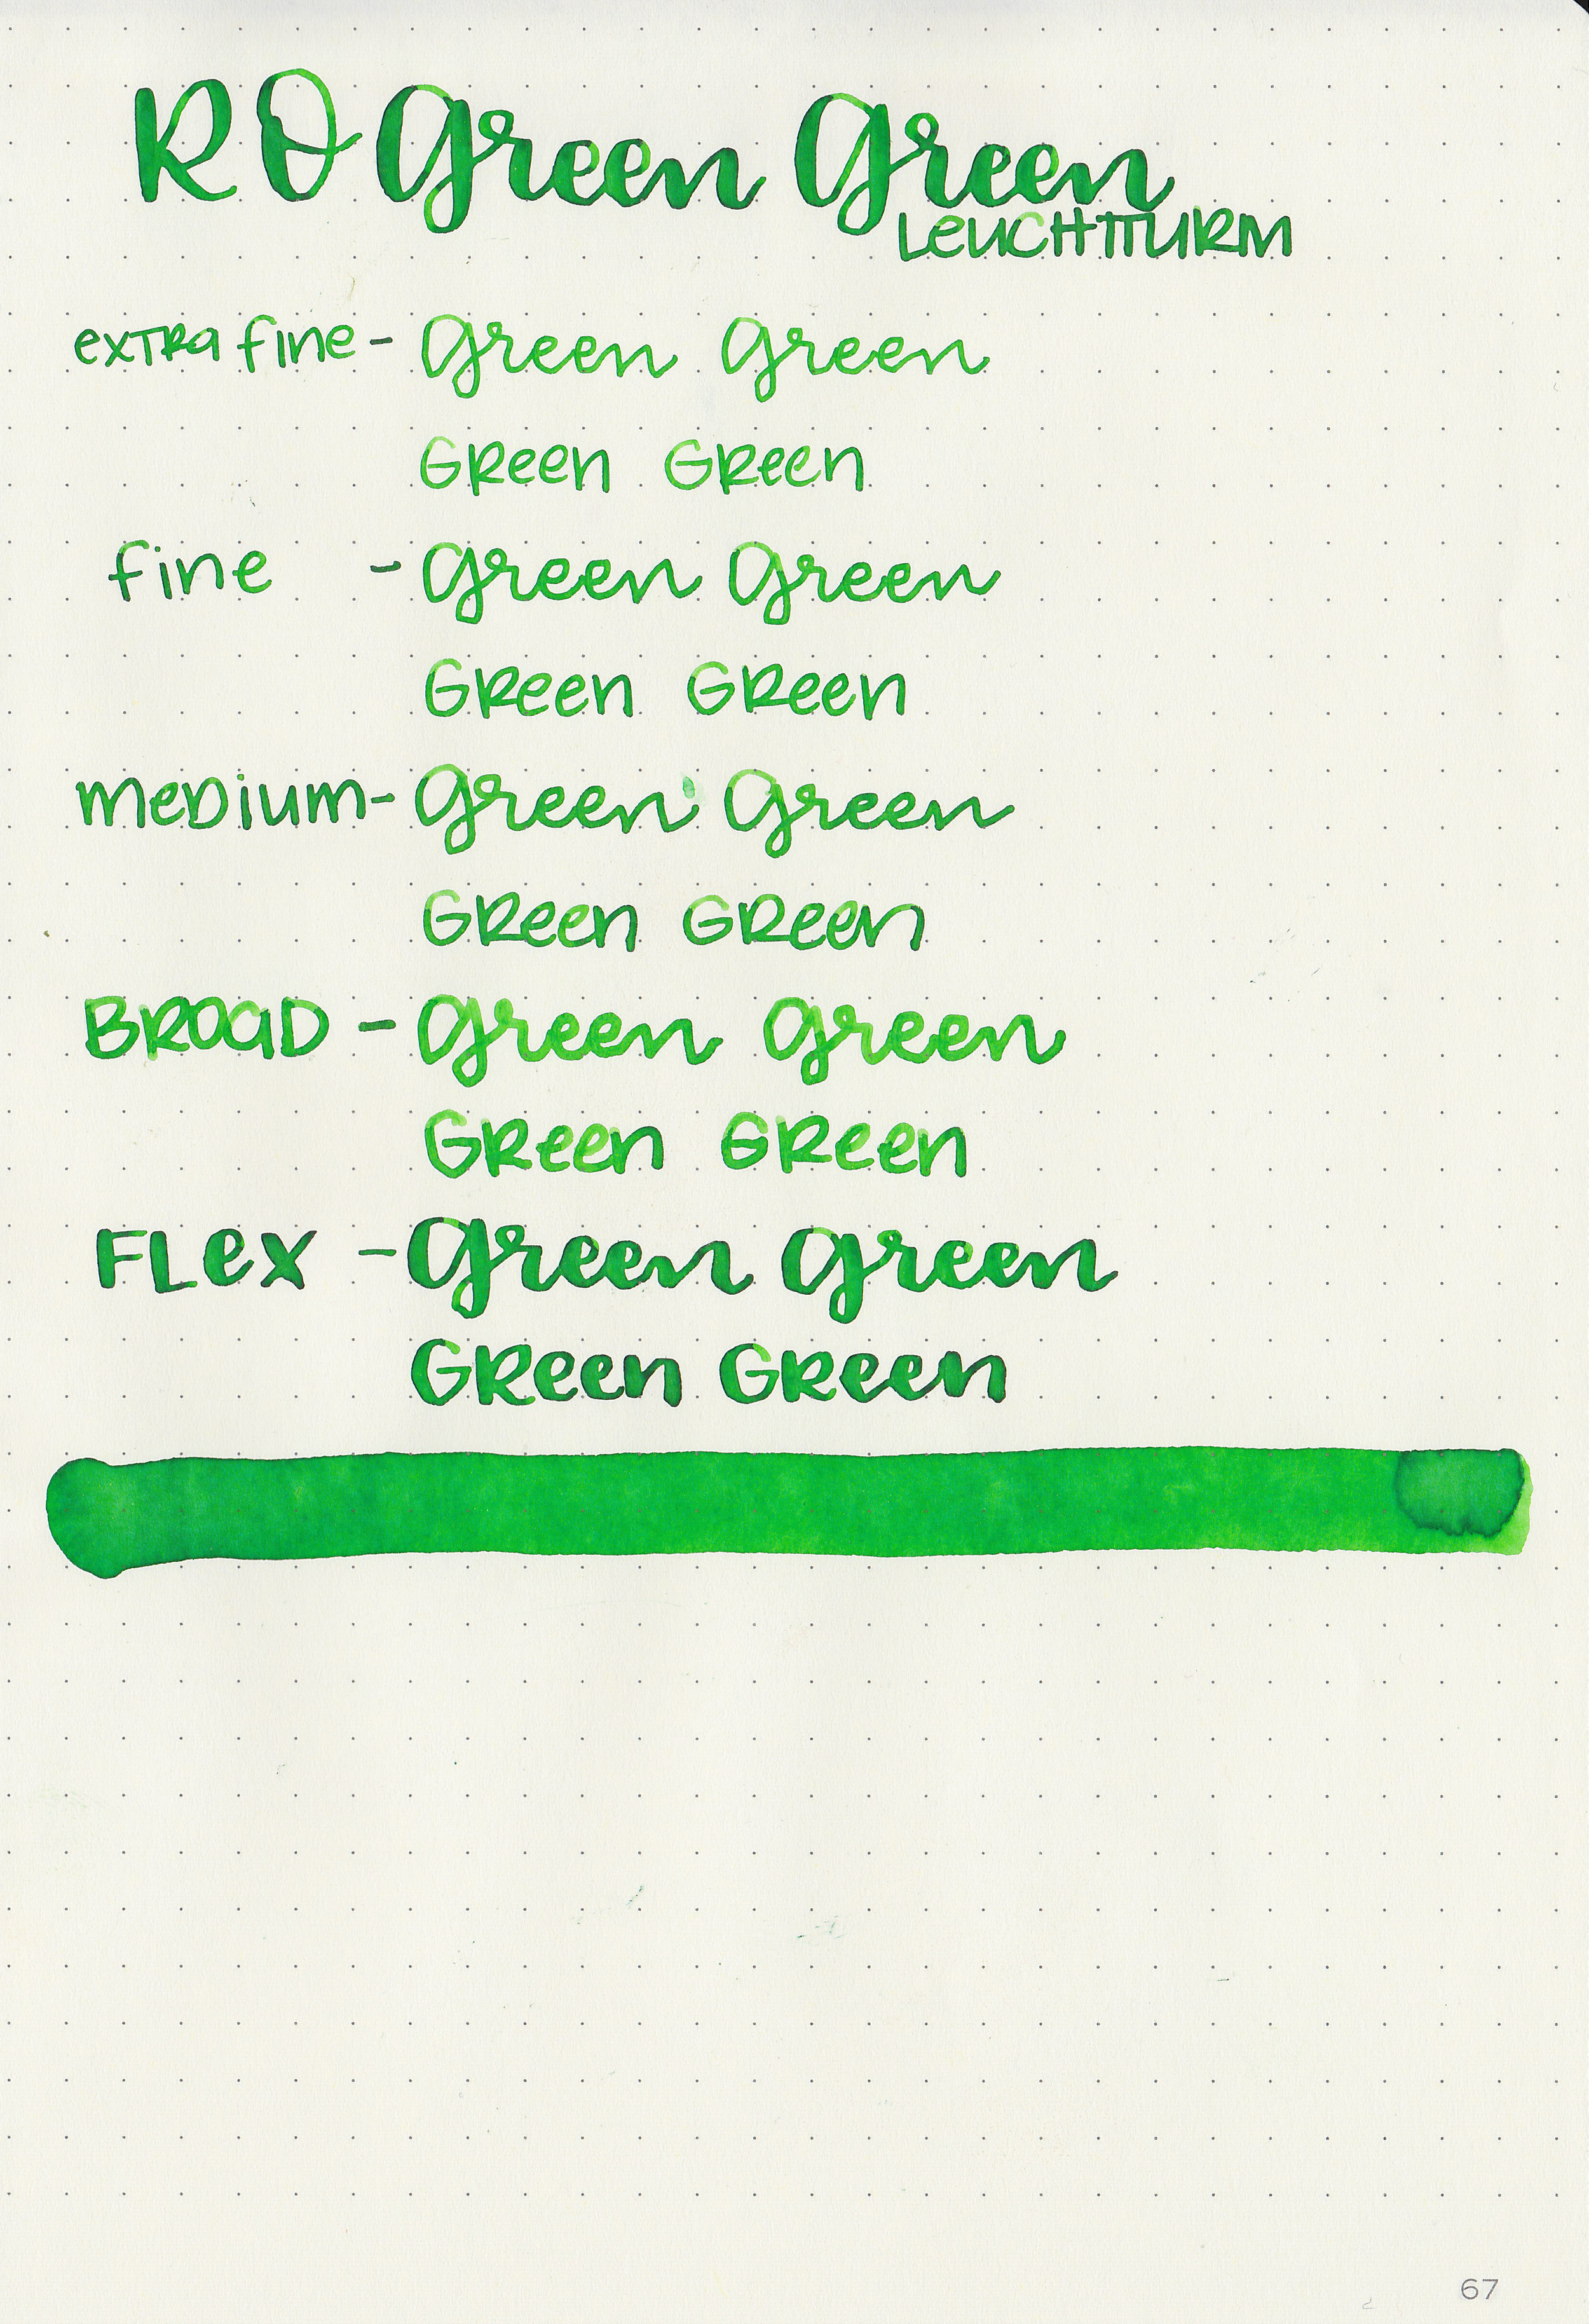 RO Green Green
Leuchtturm
extra fine - Green Green
Green Green
fine - Green Green
Green Green
medium - Green Green
Green Green
Broad - Green Green
Green Green
Flex - Green Green
Green Green
67